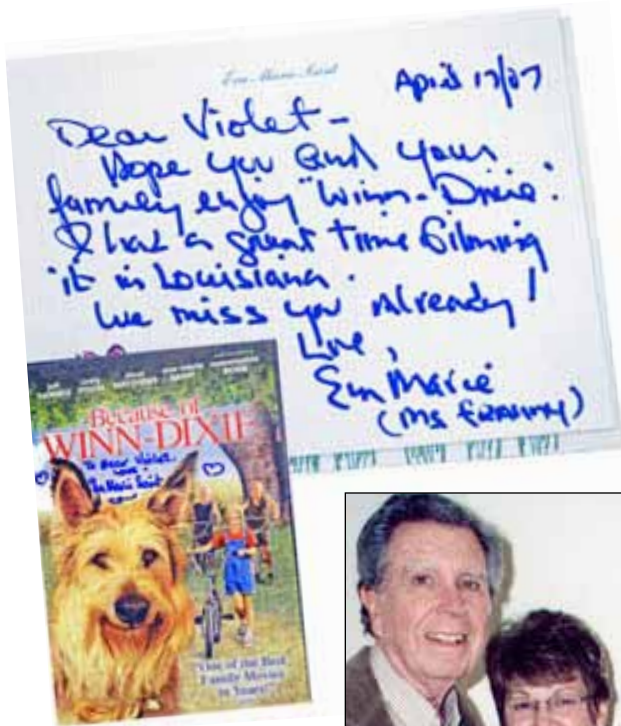 Eva Marie Saint
April 17/07
Dear Violet –
Hope you and your
family enjoy "Winn-Dixie".
I had a great time filming
it in Louisiana.
We miss you already!
Love,
Eva Marie
(Ms Franny)
Because of
WINN-DIXIE
To Dear Violet
Love
Eva Marie Saint
"One of the Best
Family Movies
in Years!"